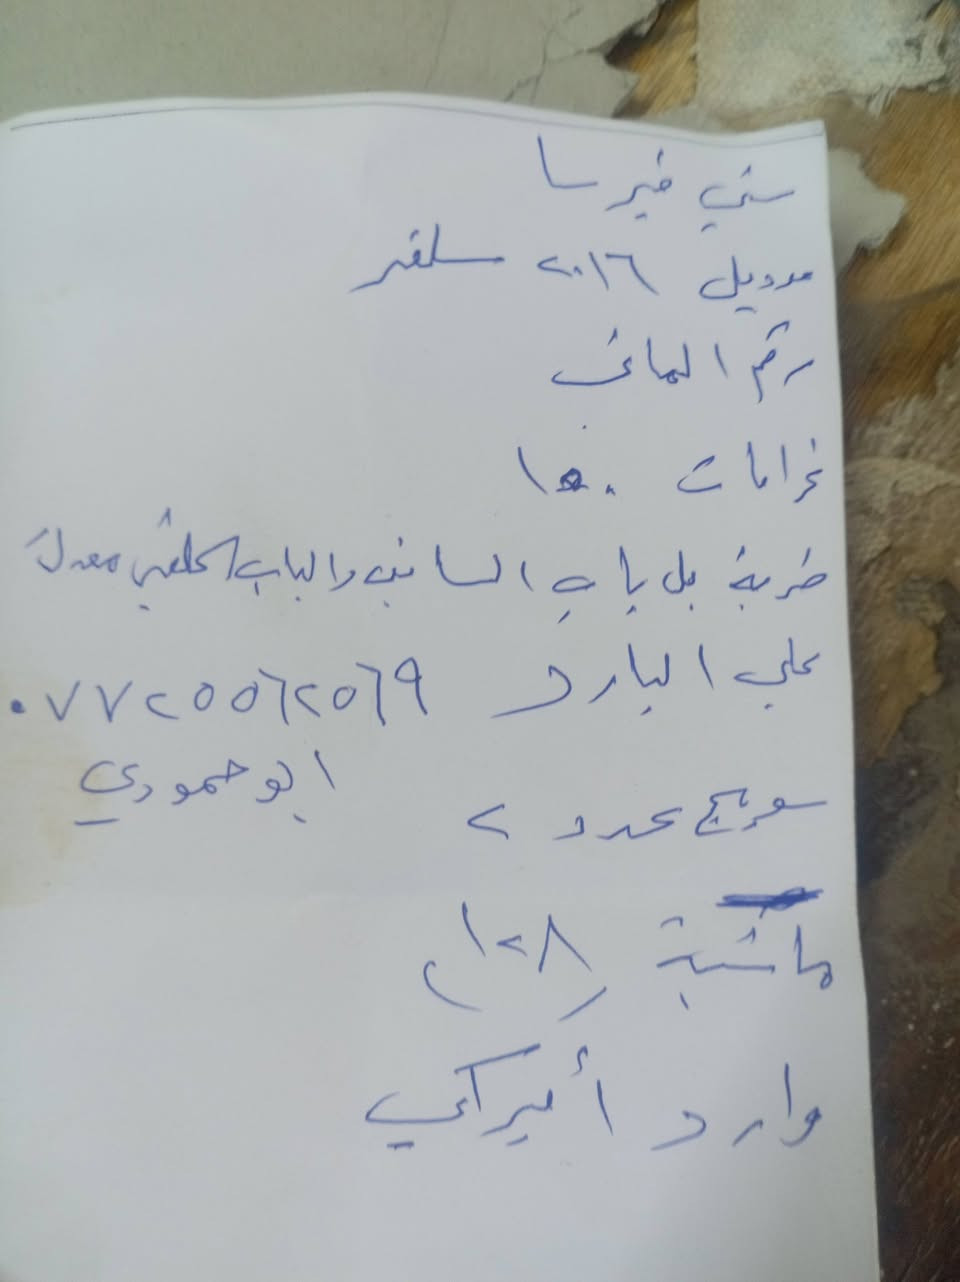 سني فيرسا
موديل ٢٠١٦ سلفر
رقم الماني
غرامات ١٥٠
ضربة بل باب السايق والباب الخلفي معدله
علي البارد ٠٧٧٢٥٥٦٢٥٦٩
ابو حمودي
سويج عدد ٢
ماشية (١٢٨)
وارد أميركي